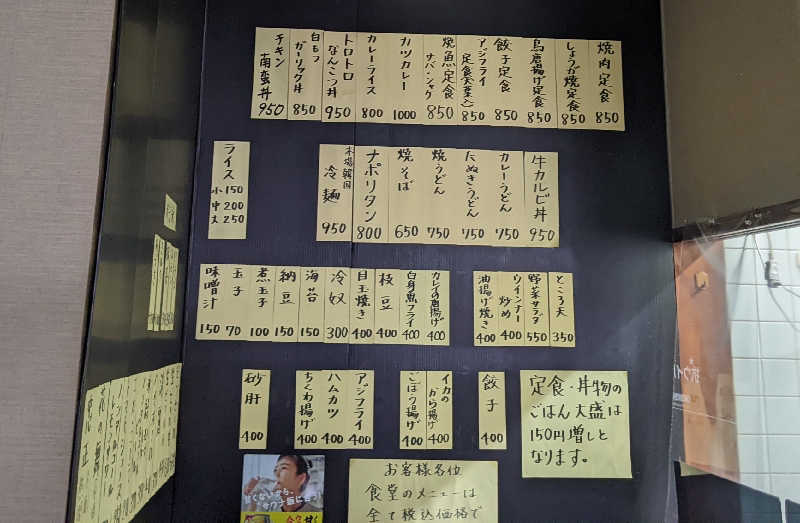 焼肉定食 850
しょうが焼定食 850
鳥唐揚げ定食 850
餃子定食 850
アジフライ定食(大葉入) 850
焼魚定食 サバ・シャケ 850
カツカレー 1000
カレーライス 800
トロトロなんこつ丼 950
白もつガーリック丼 850
チキン南蛮丼 950
牛カルビ丼 950
カレーうどん 750
たぬきうどん 750
焼うどん 750
焼そば 650
ナポリタン 800
本場韓国冷麺 950
ライス
小 150
中 200
大 250
ところ天 350
野菜サラダ 550
ウインナー炒め 400
油揚げ焼き 400
カレイの唐揚げ 400
白身魚フライ 400
枝豆 400
目玉焼き 400
冷奴 300
海苔 150
納豆 150
煮玉子 100
玉子 70
味噌汁 150
餃子 400
イカのから揚げ 400
ごぼう揚げ 400
アジフライ 400
ハムカツ 400
ちくわ揚げ 400
砂肝 400
定食・丼物の
ごはん大盛は
150円増しと
なります。
お客様各位
食堂のメニューは
全て税込価格で